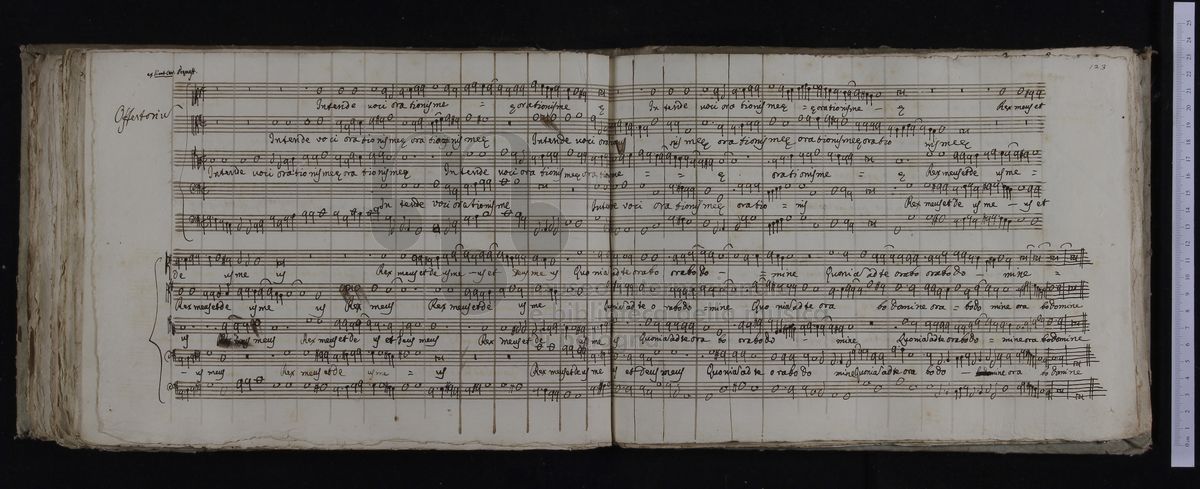 123
Offertoriu
Intende voci orationis meę = ę orationis me ę In tende voci ora tionis meę = ę orationis me - ę Rex meus et
Intende voci orationis meę orationis meę Intende voci ora nis meę orationis meę orationis meę oratio nis meę
Intende voci orationis meę orationis meę Intende voci orationis meę orationis me = = ę orationis me = ę Rex meus et de us me =
In tende voci orationis me Intende voci ora tionis meę oratio = nis Rex meus et de us me - us et
De us me us Rex meus et de us me - us et Deus me us Quoniã ad te orabo orabo do - = mine Quoniã ad te orabo orabo do - mine =
Rex meus et de us me us Rex meus Rex meus et de us me Quoniã ad te o rabo do = mine Quo niã ad te ora bo domine ora = bo do mine ora bo domine
us meus Rex meus et de us et Deus meus Rex meus et de us me us Quoniã ad te ora bo orabo do - mine Quoniã ad te orabo do = mine orabo domine
- us meus Rex meus et de us me = us Rex meus et de us me us et Deus meus Quoniã ad te orabo do mine Quoniã ad te ora bo do - mine ora bo domine